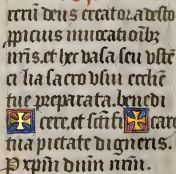 rerū deus creator. adesto
ꝓpicius inuocatiōibꝫ
nr̄is. et hec vasa seu vstē
ci lia sacro vsui ecclesie
tue preparata. bene di
✠ cere. et sāctī ✠ care
tua pietate digneris.
P xp̄m dn̄m nr̄m.